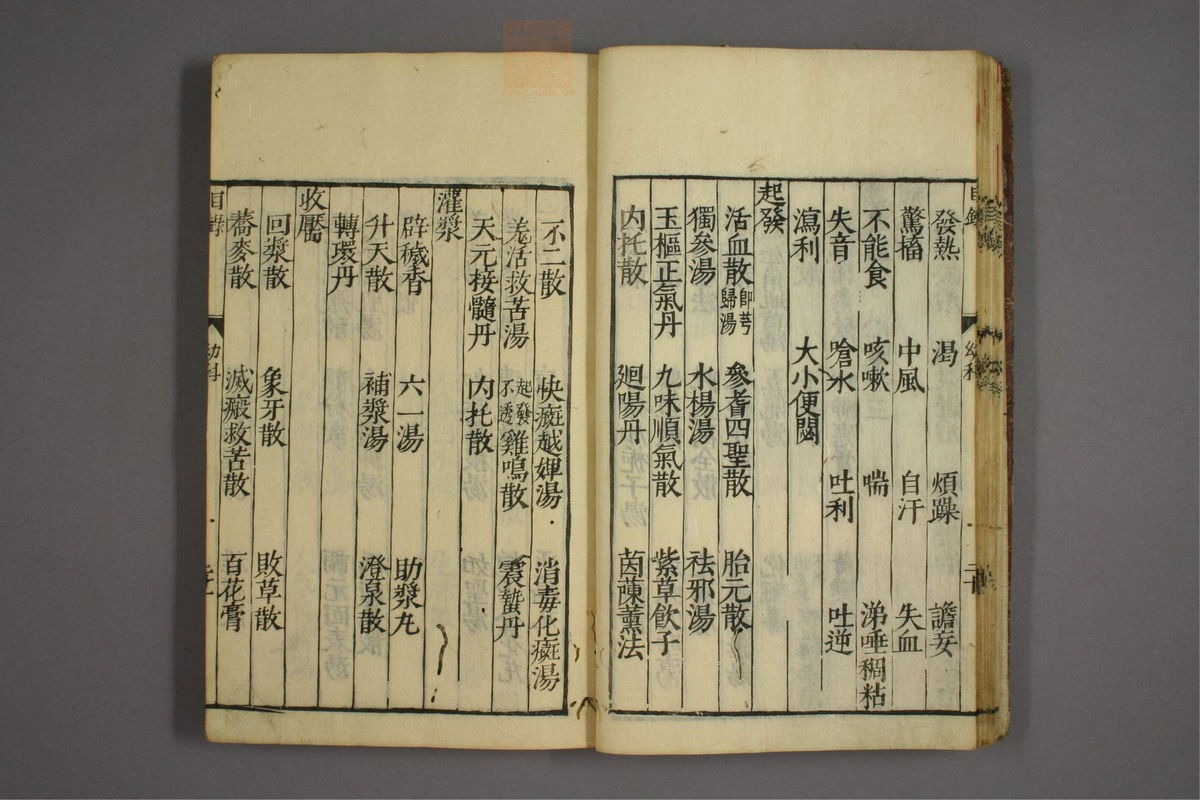 發熱 渴 煩躁 譫妄
驚搐 中風 自汗 失血
不能食 咳嗽 喘 涕唾稠粘
失音 嗆水 吐利 吐逆
瀉利 大小便閟
起發
活血散即芎歸湯 參耆四聖散 胎元散
獨參湯 水楊湯 祛邪湯
玉樞正氣丹 九味順氣散 紫草飲子
内托散 廻陽丹 茵蔯薰法
不二散 快癍越婢湯 消毒化癍湯
羗活救苦湯 起發不透雞鳴散 震蟄丹
天元接髓丹 内托散
灌漿
辟穢香 六一湯 助漿丸
升天散 補漿湯 澄泉散
轉環丹
收靨
回漿散 象牙散 敗草散
蕎麥散 滅瘢救苦散 百花膏
目錄 幼科